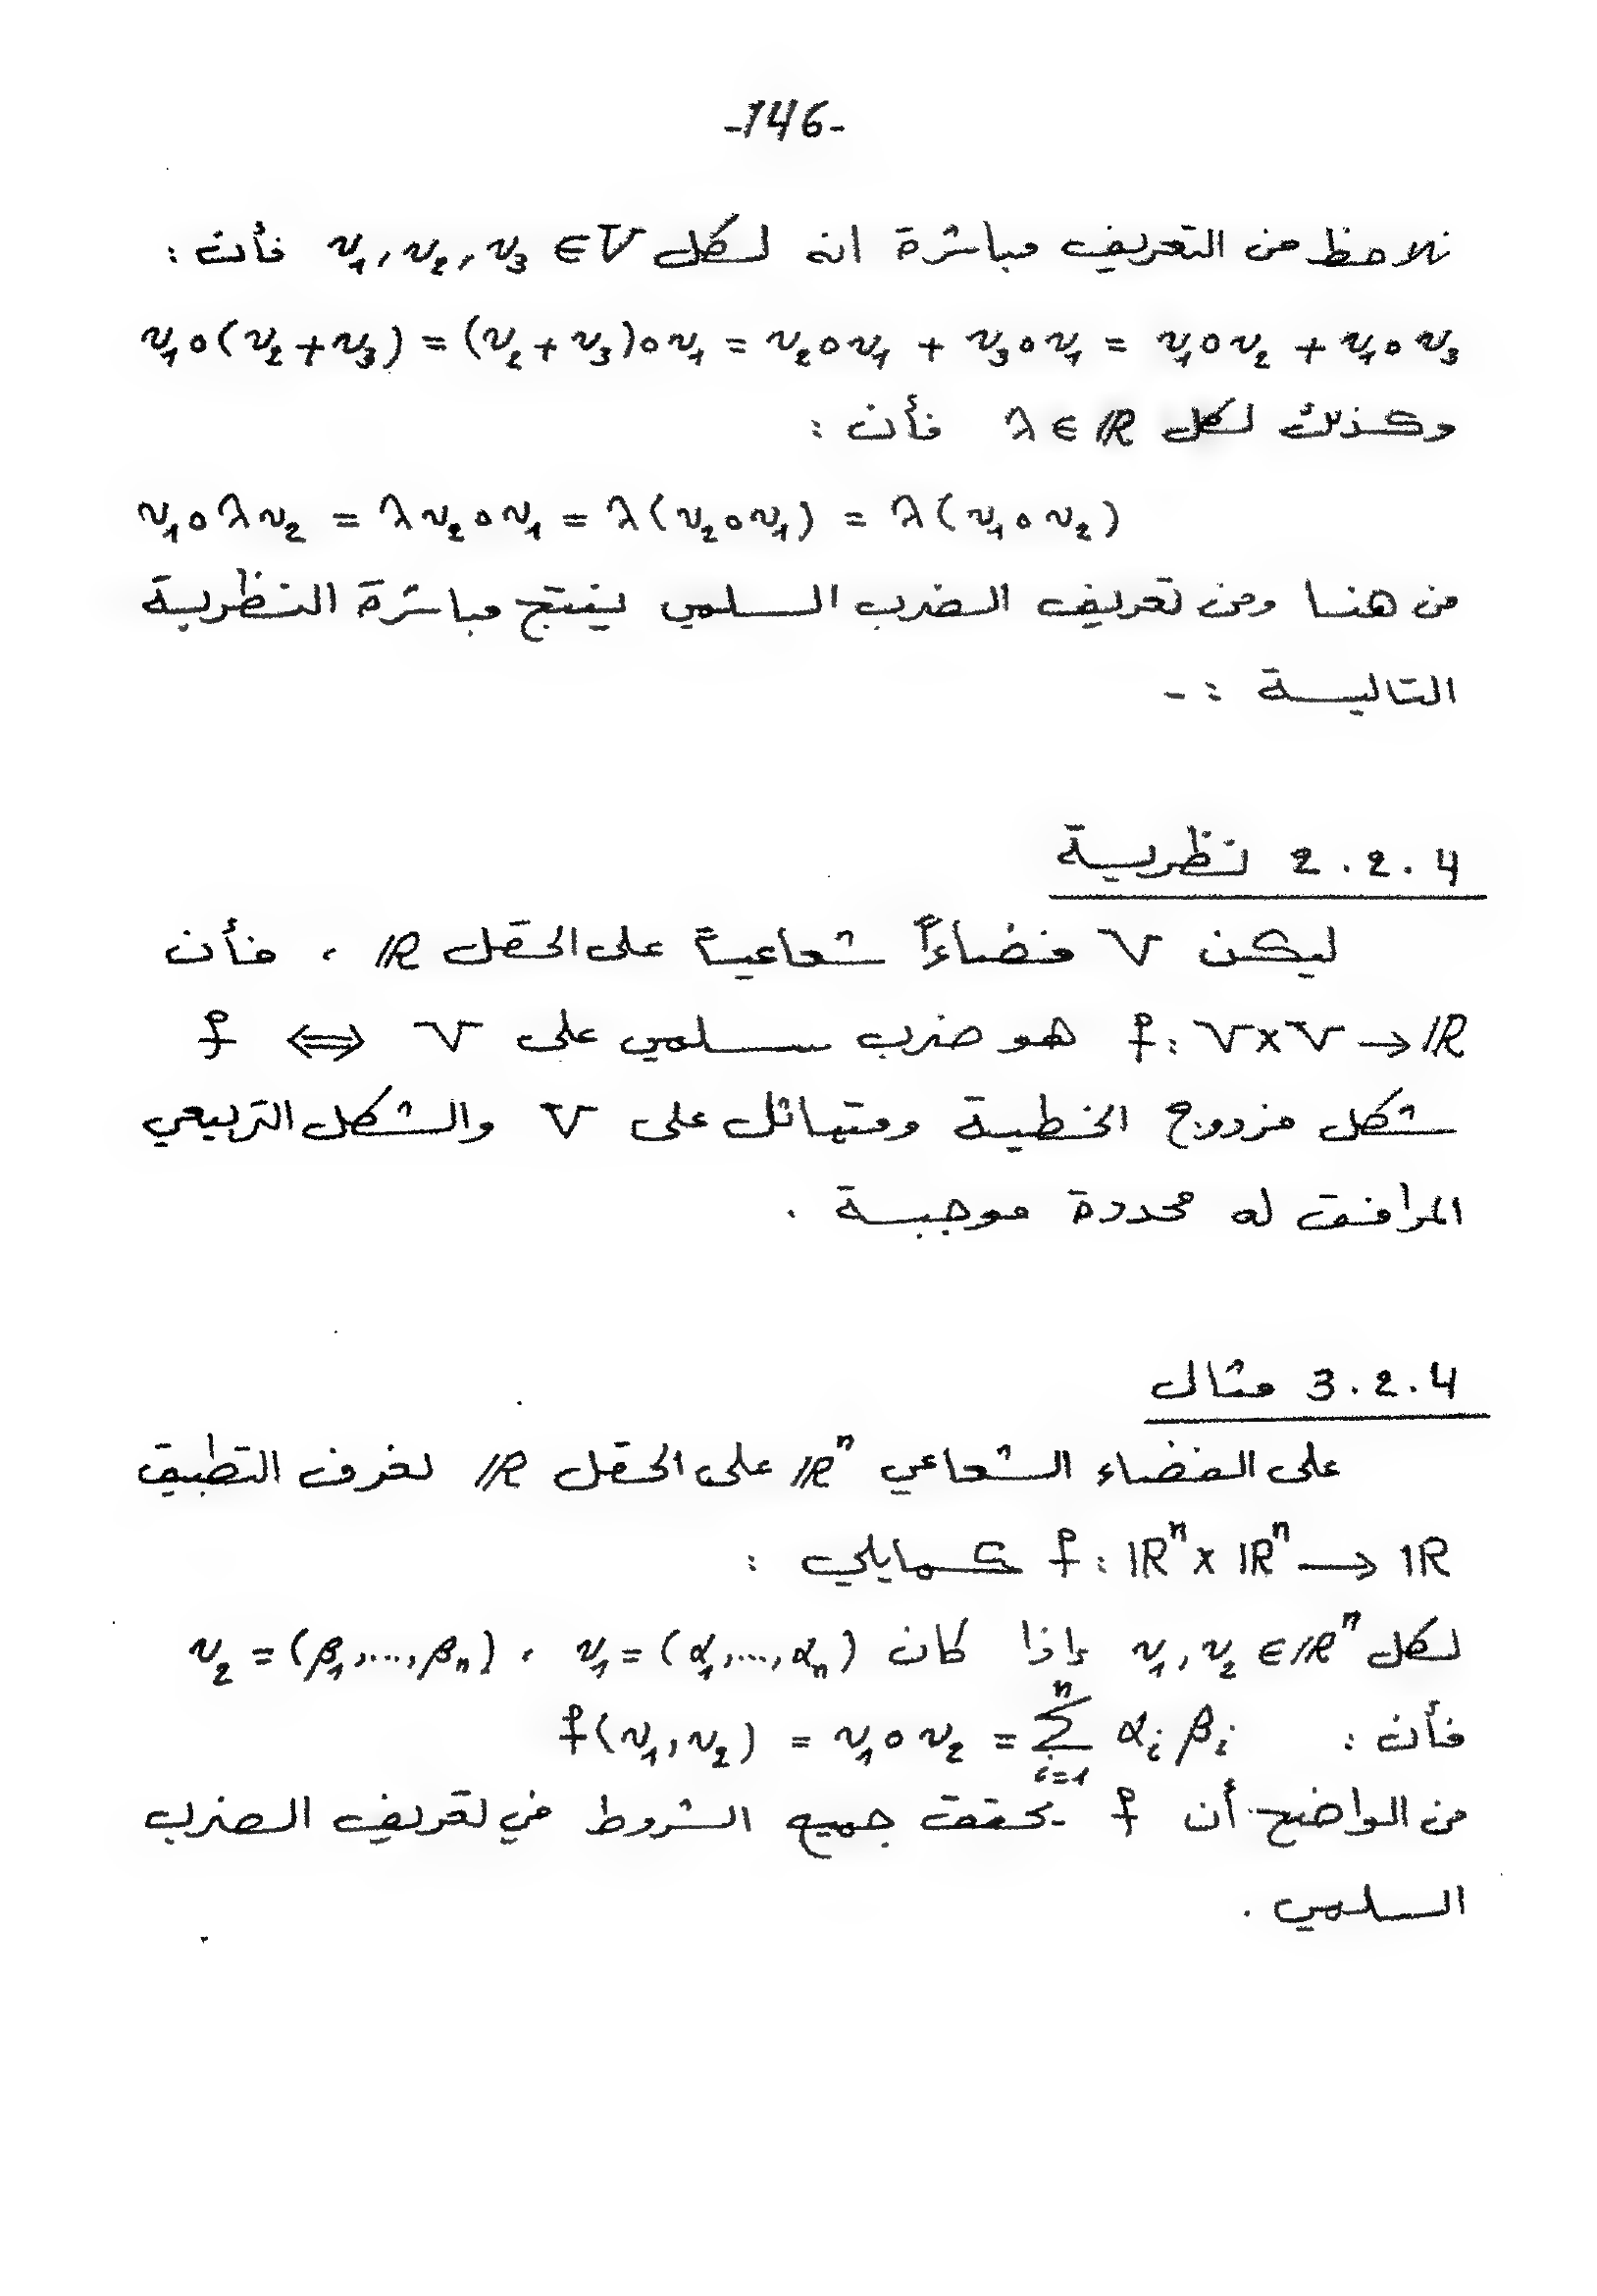 -146-
نلاحظ من التعريف مباشرة انه لكل v₁, v₂, v₃ ∈ V فأن :
v₁∘(v₂+v₃) = (v₂+v₃)∘v₁ = v₂∘v₁ + v₃∘v₁ = v₁∘v₂ + v₁∘v₃
وكذلك لكل λ ∈ ℝ فأن :
v₁∘λv₂ = λv₂∘v₁ = λ(v₂∘v₁) = λ(v₁∘v₂)
من هنا ومن تعريف الضرب السلمي ينتج مباشرة النظرية
التالية : -
2.2.4 نظرية
ليكن V فضاءاً شعاعياً على الحقل ℝ ، فأن
f : V×V → ℝ هو ضرب سلمي على V ⟺ f
شكل مزدوج الخطية ومتماثل على V والشكل التربيعي
المرافق له محددة موجبة .
3.2.4 مثال
على الفضاء الشعاعي ℝⁿ على الحقل ℝ نعرف التطبيق
f : ℝⁿ × ℝⁿ → ℝ كمايلي :
لكل v₁, v₂ ∈ ℝⁿ إذا كان v₁ = (α₁,...,αₙ) ، v₂ = (β₁,...,βₙ)
فأن : f(v₁,v₂) = v₁∘v₂ = ∑ⁿᵢ₌₁ αᵢ βᵢ
من الواضح أن f يحقق جميع الشروط في تعريف الضرب
السلمي .